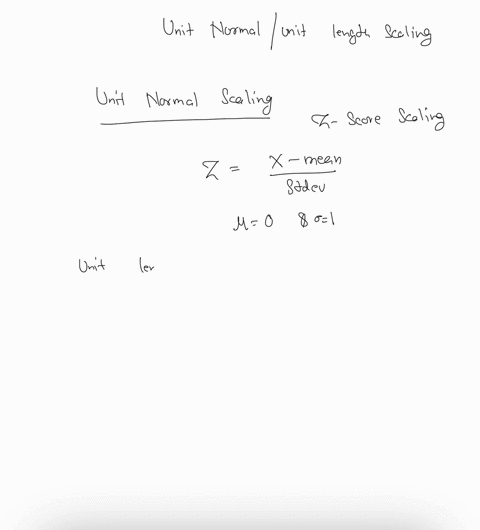 Unit Normal / unit length Scaling
Unit Normal Scaling
Z- Score Scaling
Z = X - mean / Stdev
μ= 0 & σ=1
Unit len